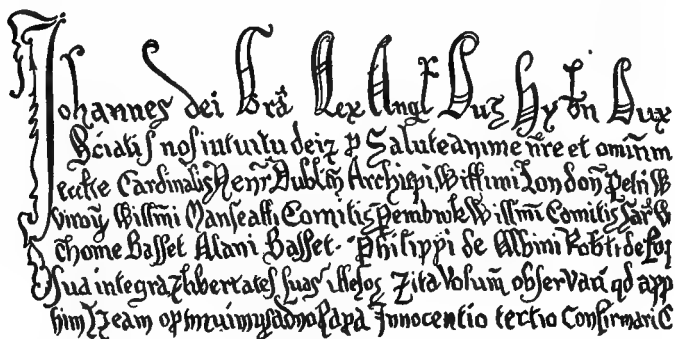 Johannes dei Grã Rex Angl Dux Hybn Dux
Sciatis nos intuitu dei & p Salute anime nr̃e et omiñm
eccłie Cardinalis Henr̃ Dubliñ Archiep̃i Willimi London Petri W
viroɽ Willm̃i Marescalli Comitis Pembrok Willm̃i Comitis Sar̃ W
Thome Basset Alani Basset Philippi de Albini Rob̃ti de
sua integra & libertates suas illesas & ita volum̃ observari qd app
eam optinuimus a dño Papa Innocentio tertio Confirmari